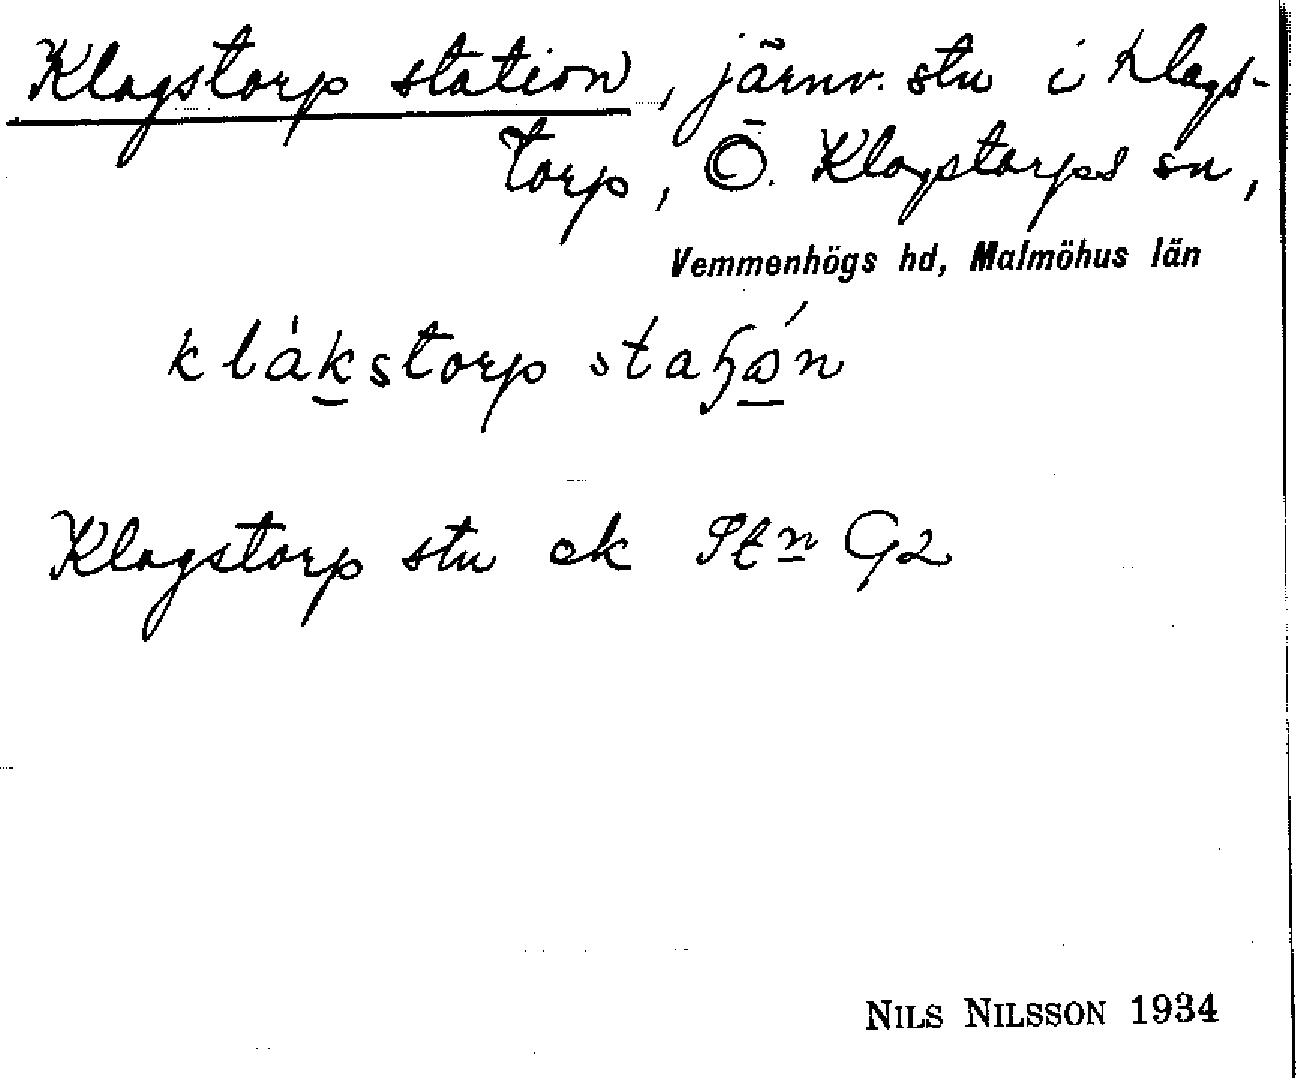 Klagstorp station, järnv. stn i Klags-
torp, Ö. Klagstorps sn,
Vemmenhögs hd, Malmöhus län
klákstorp
Klagstorp stn ek Stn G2
NILS NILSSON 1934